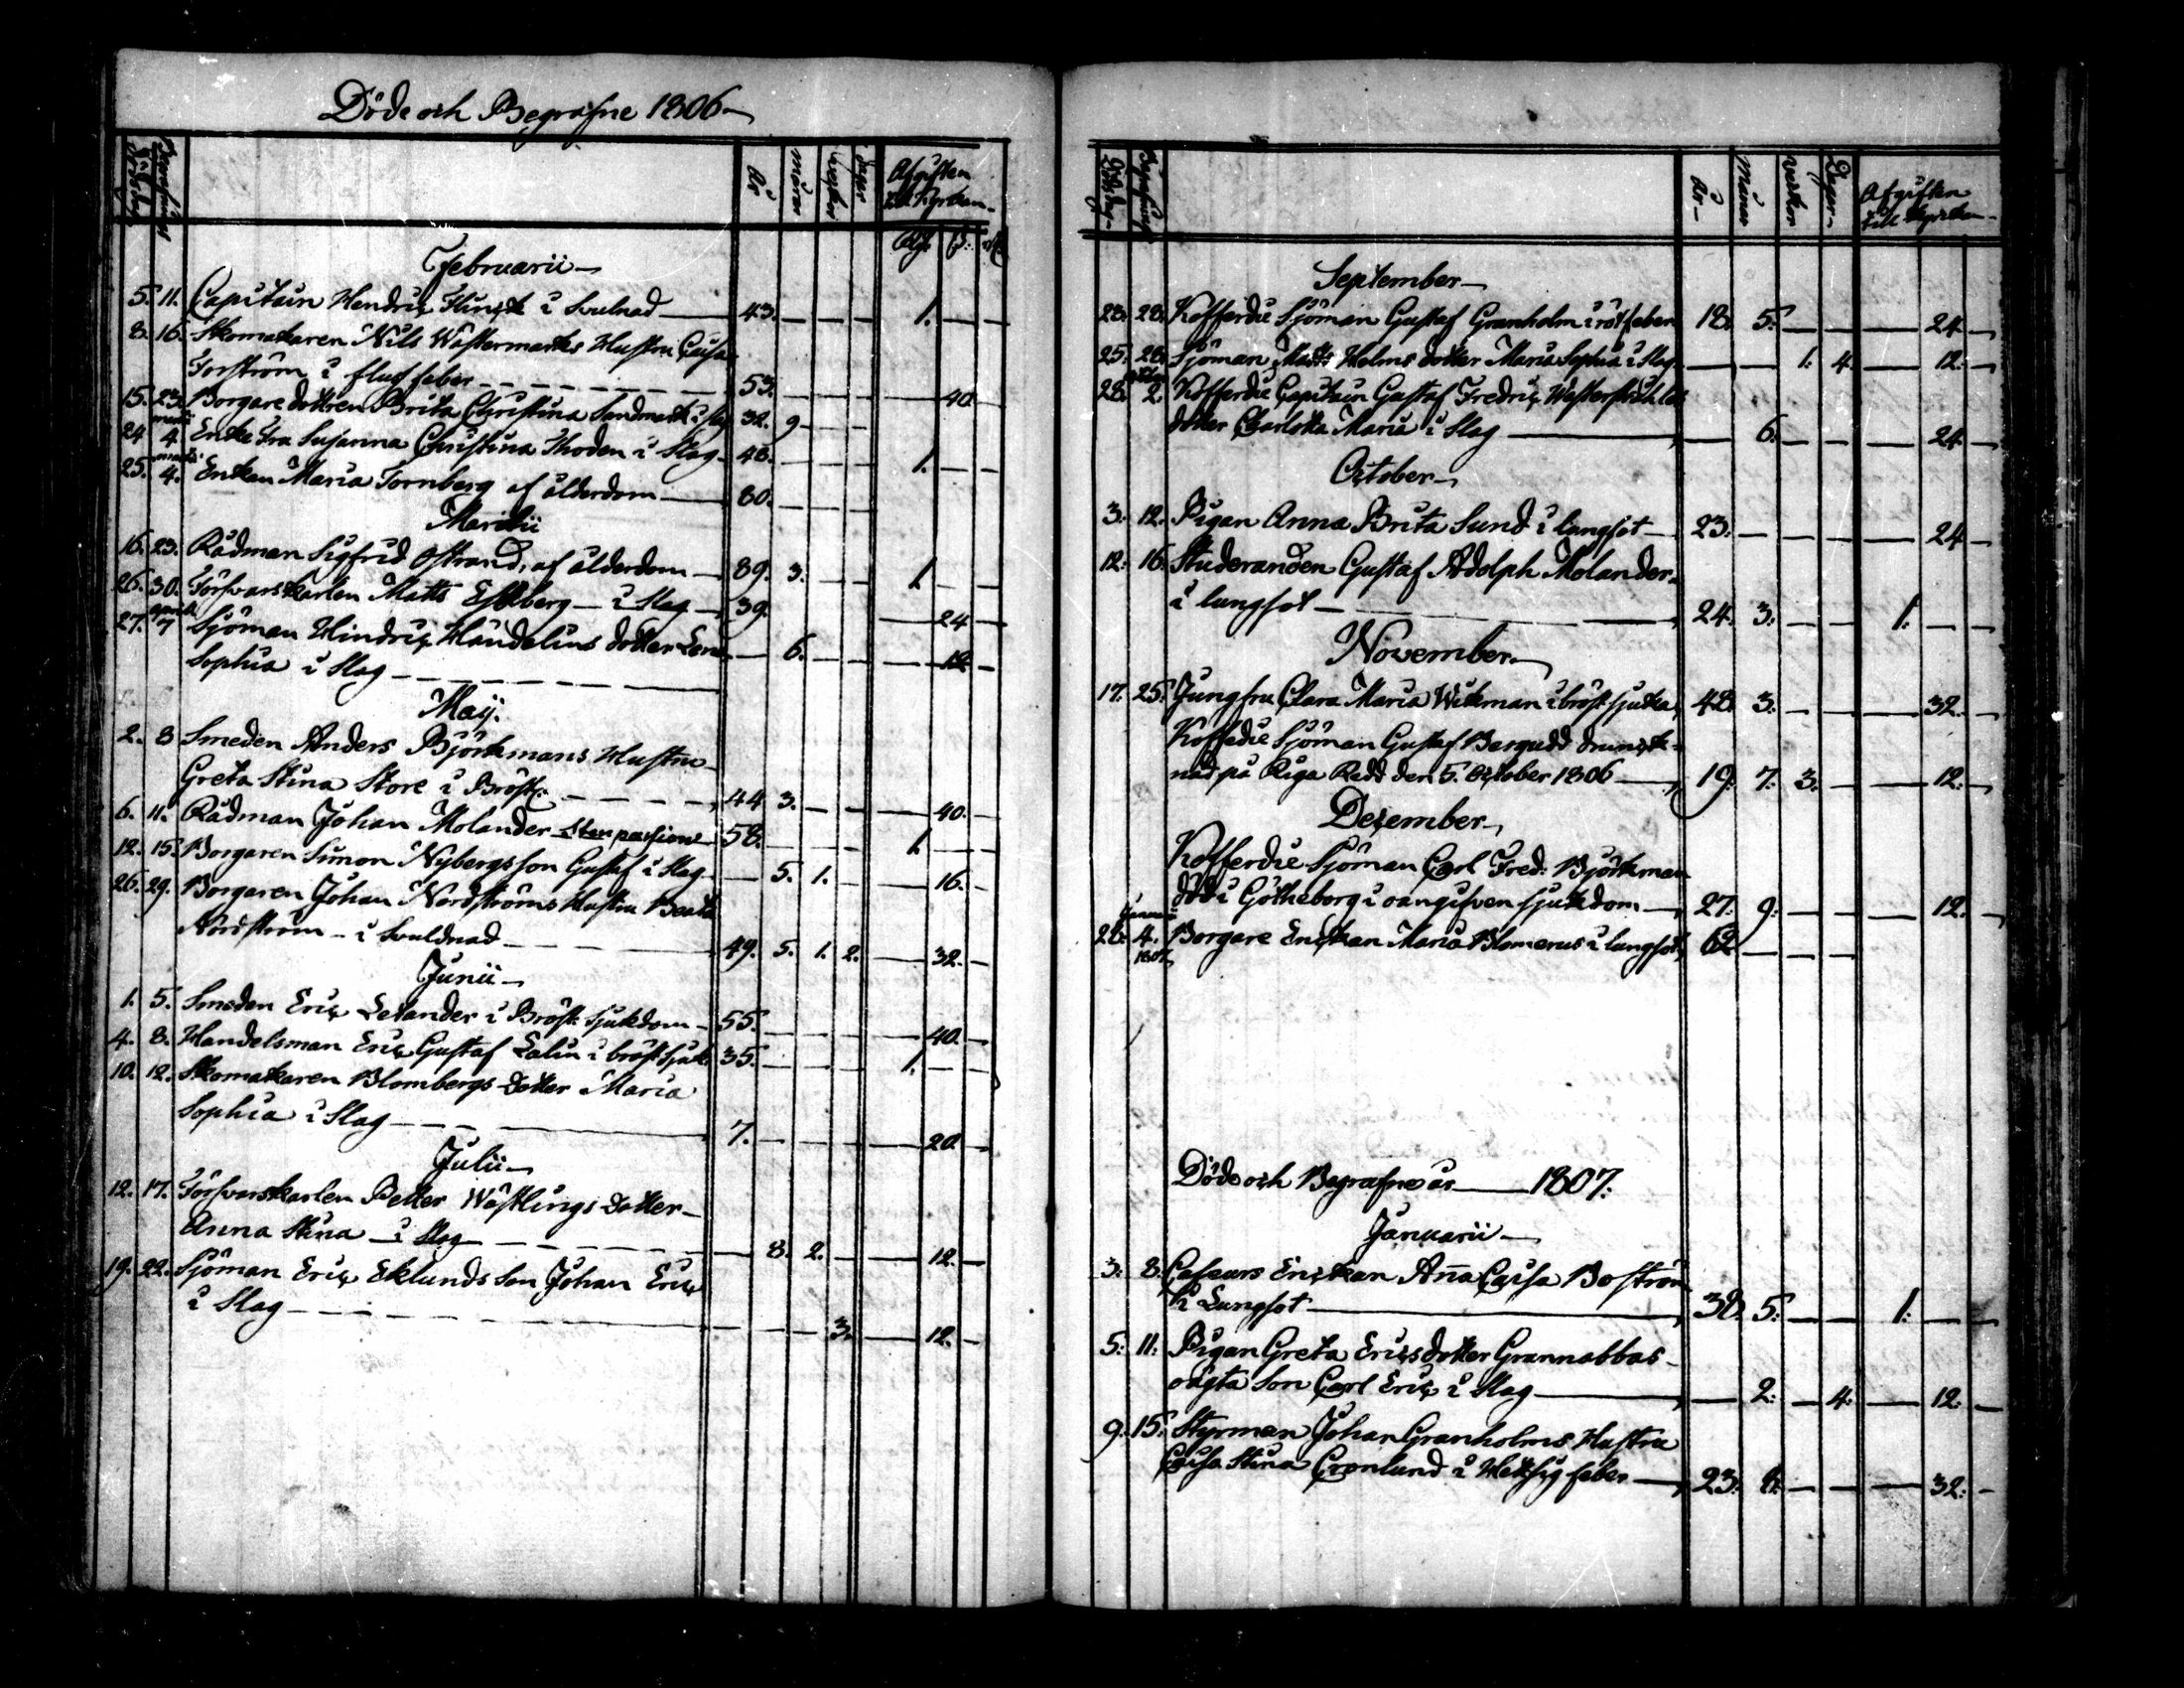 Döde och Begrafne 1806
Döds dag Begrafnings dag År Månar Veckor Dagar Afgiften till Kyrkan
Februarii
5. 11. Capitain Hendric Flinck i Svulnad 43. 1.
8. 16. Skomakaren Nils Wästermarks Hustru Caisa
Forström i fluss feber 53. 40.
15. 23. Borgare dottren Brita Christina Sandmark i slag 32. 9
24 martii 4. Enke Fru Susanna Christina Thoden i Slag 48. 1.
25. martii 4. Enkan Maria Tornberg af ålderdom 80.
Martii
16. 23. Rådman Sigfrid Östrand, af ålderdom 89. 3. 1.
26. 30. Försvarskarlen Matts Ekeberg i Slag 39. 24
27. april 7 Sjöman Hindric Händelins dotter Lena
Sophia i Slag 6. 12
Maij.
2. 8 Smeden Anders Björkmans Hustru
Greta Stina Store i Bröst 44 3. 40.
6. 11. Rådman Johan Molander Stenpassion 58. 1.
12. 15. Borgaren Simon Nybergs son Gustaf i Slag 5. 1. 16.
26. 29. Borgaren Johan Nordströms Hustru Beata
Nordström i Svuldnad 49. 5. 1. 2. 32.
Junii
1. 5. Smeden Eric Lelander i Bröst Sjukdom 55. 40.
4. 8. Handelsman Eric Gustaf Lalin i bröst sjuk. 35. 1.
10. 12. Skomakaren Blombergs dotter Maria
Sophia i Slag 7. 20.
Julii
12. 17. Försvarskarlen Petter Wästlings dotter
Anna Stina i Slag 8. 2. 12.
19. 22. Sjöman Eric Eklunds Son Johan Eric
i Slag 3. 12.
Döds dag Begrafnings År Månar veckor Dagar Afgiften till Kyrkan
September
23. 28. Kofferdie Sjöman Gustaf Granholm i rötfeber 18. 5. 24
25. 28. Sjöman Matts Holms dotter Maria Sophia i Slag 1. 4. 12.
28. 2. Kofferdie Capitain Gustaf Fredric Westerstråhles
dotter Charlotta Maria i Slag 6. 24
October
3. 12. Pigan Anna Brita Sund i lungsot 23. 24
12. 16. Studeranden Gustaf Adolph Molander
i lungsot 24. 3. 1.
November
17. 25. Jungfru Clara Maria Wikman i bröst sjuka 48. 3. 32.
Koffedie Sjöman Gustaf Bergudd drunck=
nad på Riga Redd den 5. October 1806 19. 7. 3. 12.
December
Kofferdie Sjöman Carl Fred: Björkman
död i Götheborg i oangifven sjukdom 27. 9. 12.
28. Januarii 4. 1807 Borgare Enckan Maria Blomerus i lungsot 62
Döde och Begrafne år 1807.
Januarii
3. 8. Caseurs Enckan Anna Caisa Boström
i Lungsot 38. 5. 1.
5. 11. Pigan Greta Ericsdotter Grannabbas
oägta Son Carl Eric i Slag 2. 4. 12.
9. 15. Styrman Johan Granholms Hustru
Caisa Stina Cronlund i Hetsig feber 23. 8. 32.